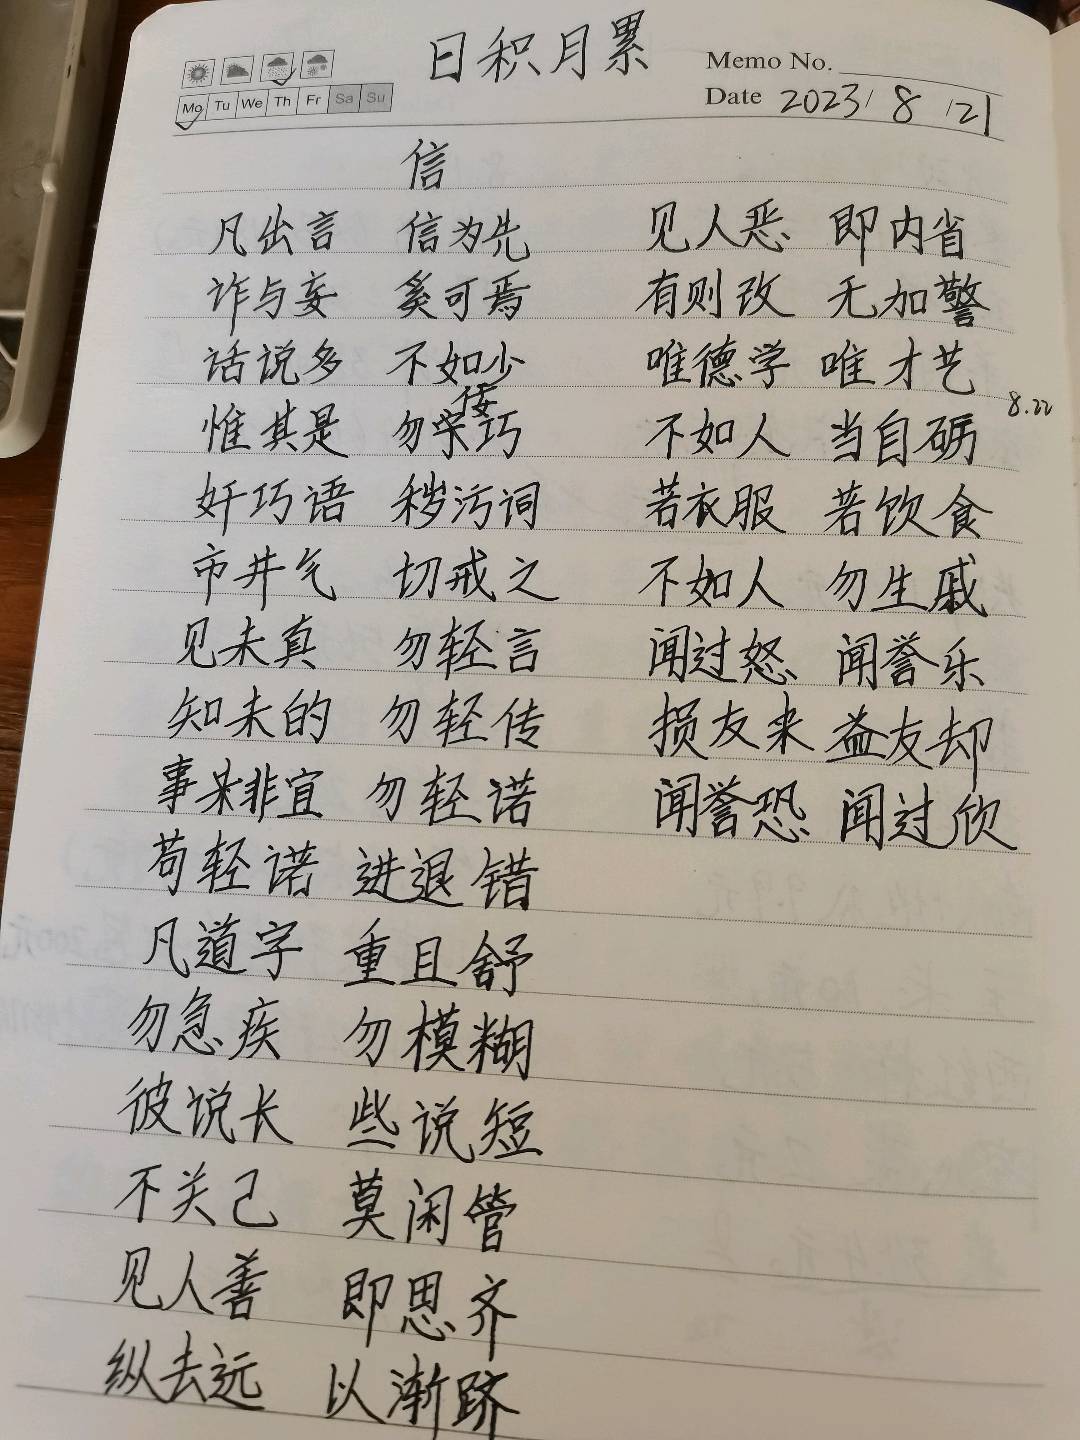 日积月累
Memo No.
Mo Tu We Th Fr Sa Su
Date 2023/8/21
信
凡出言 信为先
诈与妄 奚可焉
话说多 不如少
惟其是 勿佞巧
奸巧语 秽污词
市井气 切戒之
见未真 勿轻言
知未的 勿轻传
事非宜 勿轻诺
苟轻诺 进退错
凡道字 重且舒
勿急疾 勿模糊
彼说长 些说短
不关己 莫闲管
见人善 即思齐
纵去远 以渐跻
见人恶 即内省
有则改 无加警
唯德学 唯才艺
8.22
不如人 当自砺
若衣服 若饮食
不如人 勿生戚
闻过怒 闻誉乐
损友来 益友却
闻誉恐 闻过欣